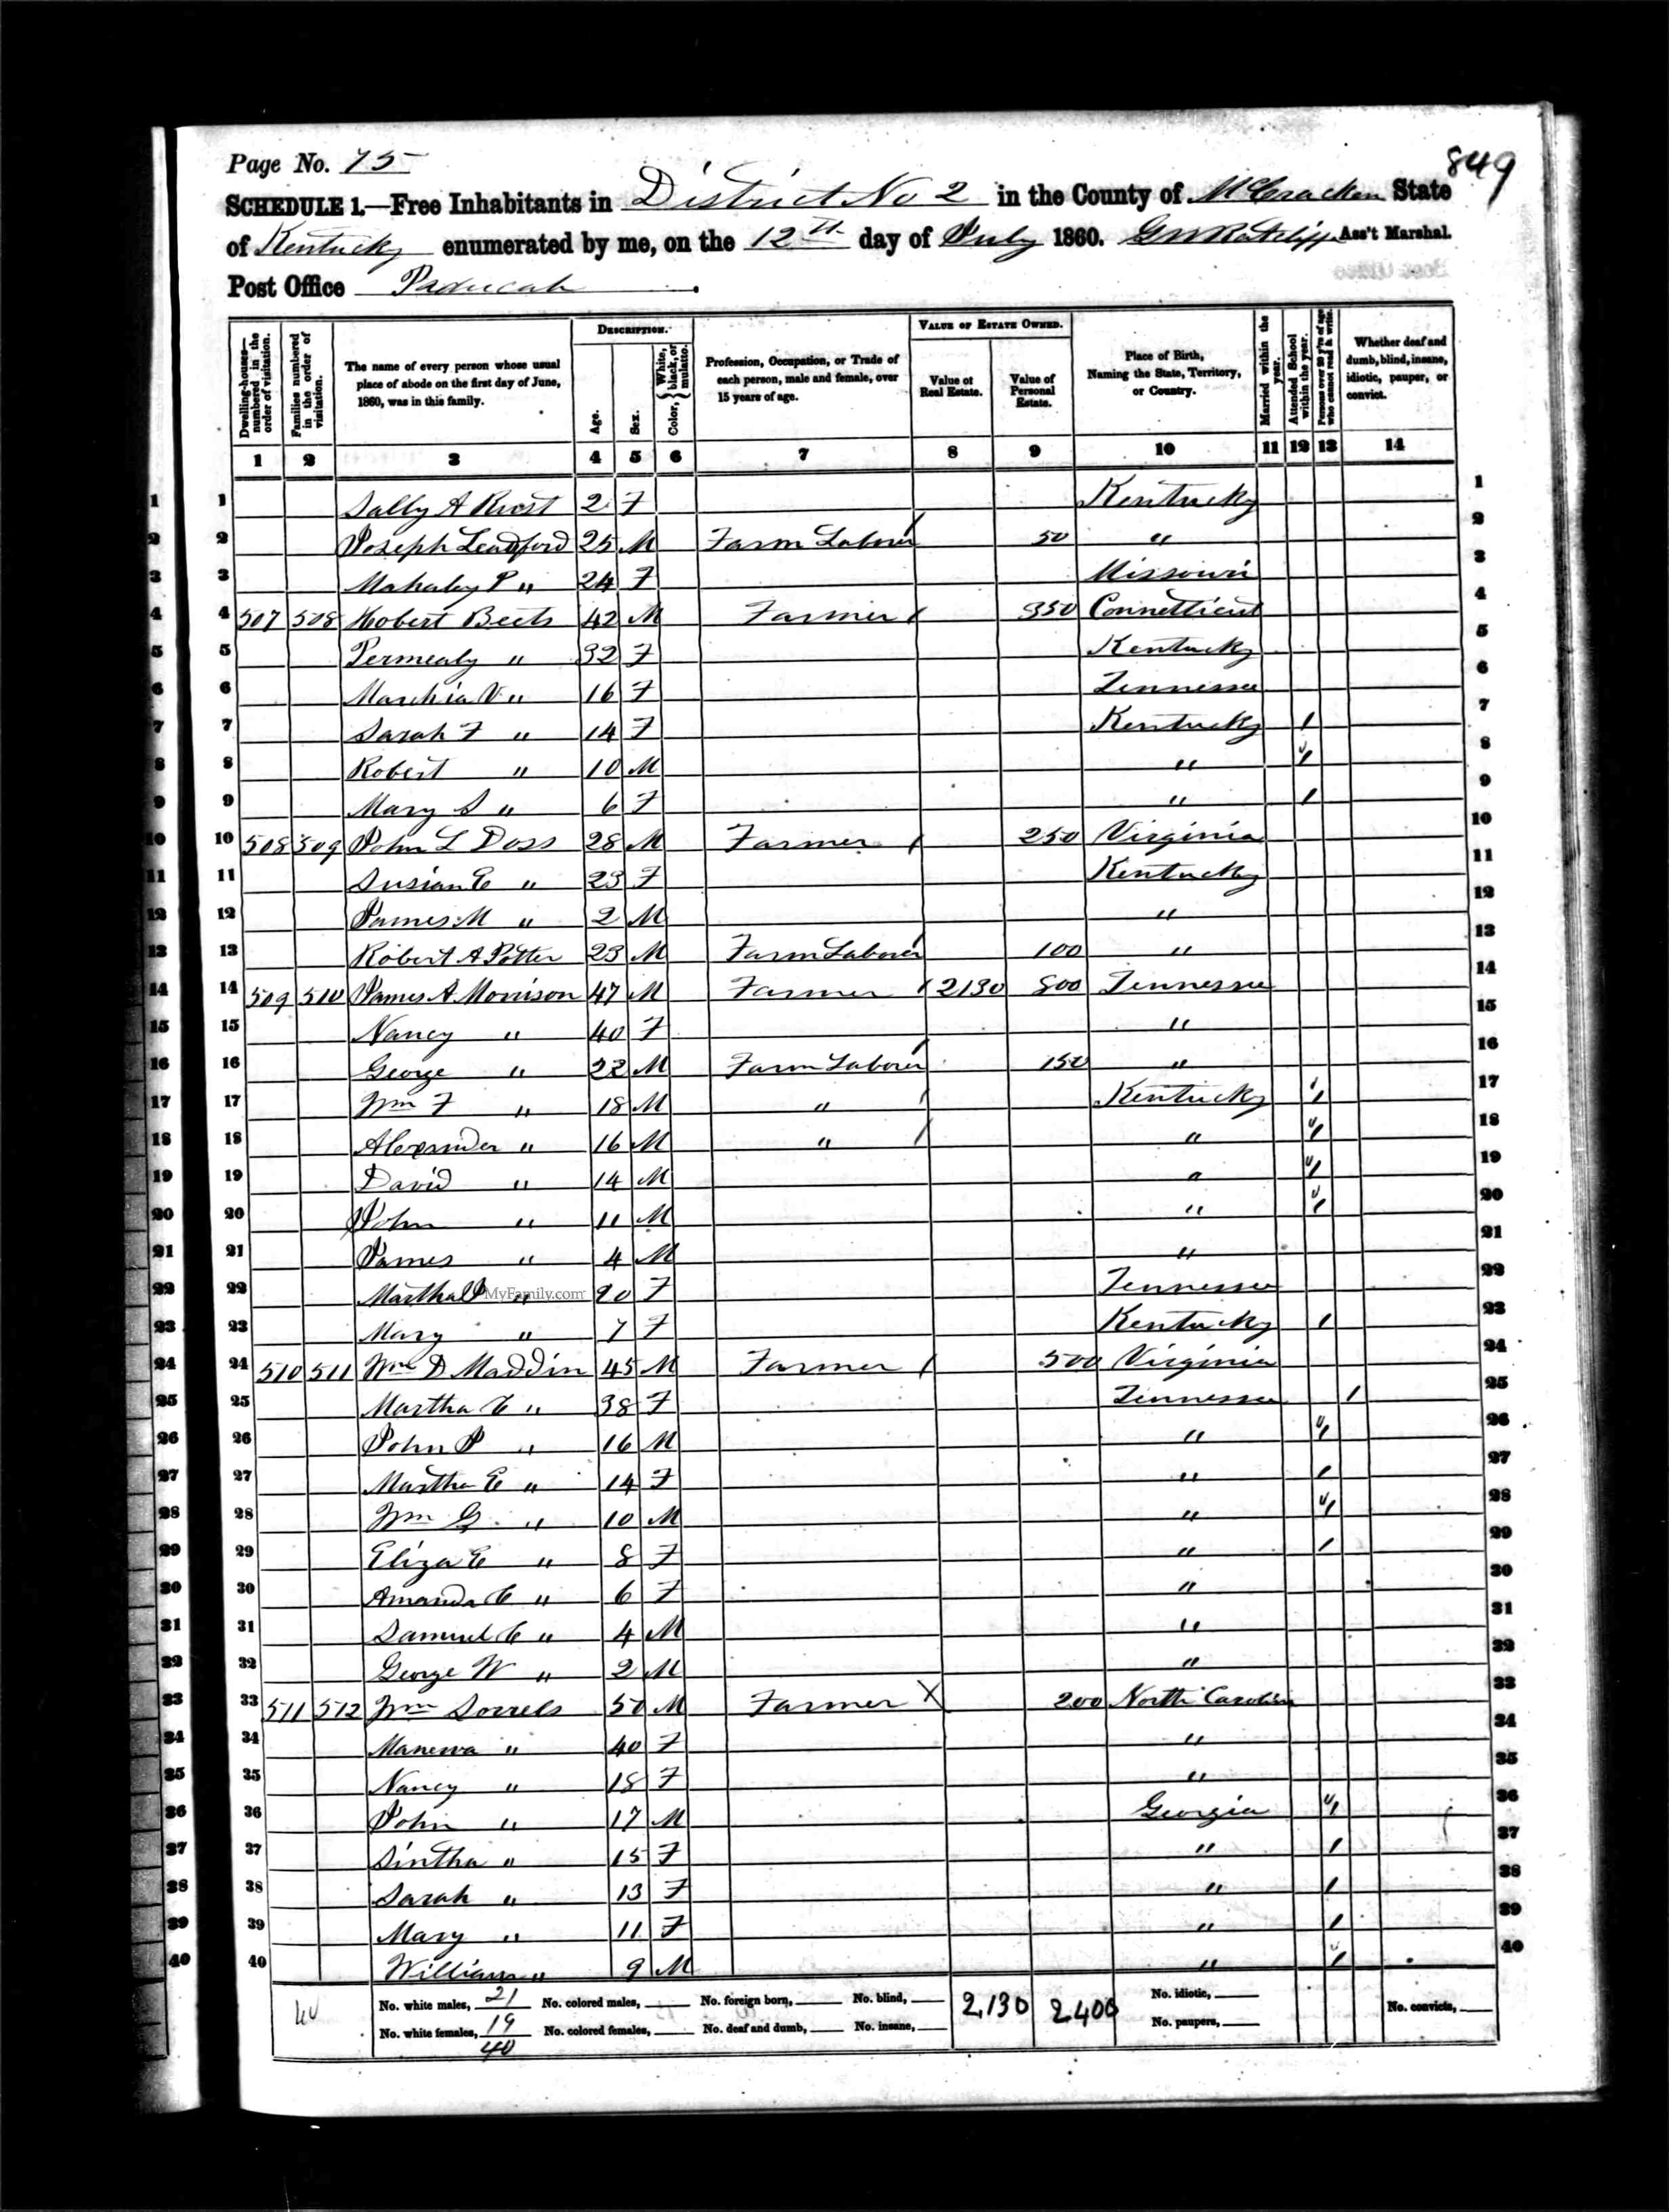 849
Page No. 75
SCHEDULE 1.—Free Inhabitants in District No 2 in the County of McCracken State
of Kentucky enumerated by me, on the 12th day of July 1860. G W Ratcliff Ass't Marshal.
Post Office Paducah
Dwelling-houses—numbered in the order of visitation.
Families numbered in the order of visitation.
The name of every person whose usual place of abode on the first day of June, 1860, was in this family.
DESCRIPTION.
Age.
Sex.
Color, { White, black, or mulatto.
Profession, Occupation, or Trade of each person, male and female, over 15 years of age.
VALUE OF ESTATE OWNED.
Value of Real Estate.
Value of Personal Estate.
Place of Birth, Naming the State, Territory, or Country.
Married within the year.
Attended School within the year.
Persons over 20 y'rs of age who cannot read & write.
Whether deaf and dumb, blind, insane, idiotic, pauper, or convict.
1 2 3 4 5 6 7 8 9 10 11 12 13 14
1 1 Sally A 2 F Kentucky 1
2 2 Joseph Leadford 25 M Farm Laborer / 50 " 2
3 3 Mahaley P " 24 F Missouri 3
4 4 507 508 Hobert Beets 42 M Farmer / 350 Connetticut 4
5 5 Permealy " 32 F Kentucky 5
6 6 V " 16 F Tennessee 6
7 7 Sarah F " 14 F Kentucky / 7
8 8 Robert " 10 M " / 8
9 9 Mary S " 6 F " / 9
10 10 508 509 John L Doss 28 M Farmer / 250 Virginia 10
11 11 Susian E " 23 F Kentucky 11
12 12 James M " 2 M " 12
13 13 Robert A Potter 23 M Farm Laborer / 100 " 13
14 14 509 510 James A. Morrison 47 M Farmer / 2130 800 Tennessee 14
15 15 Nancy " 40 F " 15
16 16 George " 22 M Farm Laborer / 150 " 16
17 17 Wm F " 18 M " / Kentucky / 17
18 18 Alexander " 16 M " / " / 18
19 19 David " 14 M " / 19
20 20 John " 11 M " / 20
21 21 James " 4 M " 21
22 22 Martha MyFamily.com " 20 F Tennessee 22
23 23 Mary " 7 F Kentucky / 23
24 24 510 511 Wm D Maddin 45 M Farmer / 500 Virginia 24
25 25 Martha C " 38 F Tennessee / 25
26 26 John P " 16 M " / 26
27 27 Martha E " 14 F " / 27
28 28 Wm G. " 10 M " / 28
29 29 Eliza E " 8 F " / 29
30 30 Amanda C " 6 F " 30
31 31 Samuel C " 4 M " 31
32 32 George W " 2 M " 32
33 33 511 512 Wm Sorrels 50 M Farmer X 200 North Carolina 33
34 34 Manerva " 40 F " 34
35 35 Nancy " 18 F " 35
36 36 John " 17 M Georgia / 36
37 37 Sintha " 15 F " / 37
38 38 Sarah " 13 F " / 38
39 39 Mary " 11 F " / 39
40 40 William " 9 M " / 40
40 No. white males, 21 No. colored males, No. foreign born, No. blind, 2,130 2400 No. idiotic, No. convicts,
No. white females, 19 No. colored females, No. deaf and dumb, No. insane, No. paupers,
40